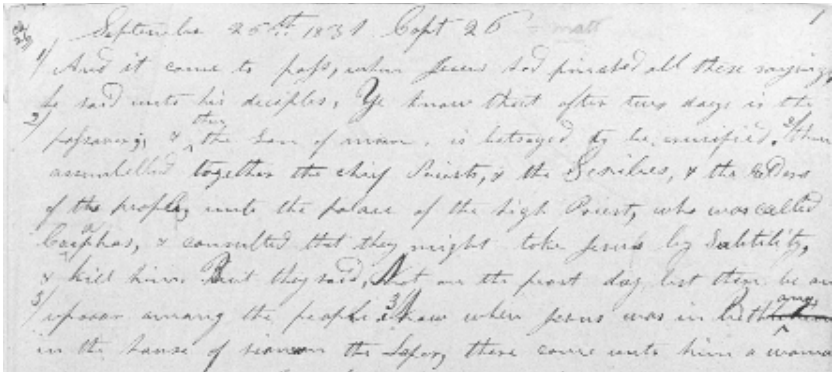 1
September 26th 1831 Capt 26 matt
1/ And it came to pass, when Jesus had finished all these sayings
he said unto his deciples, Ye know that after two days is the
2/ passover, & then the Son of man, is betrayed to be crucified. 2/ then
assembelled together the chief Priests, & the Scribes, & the Elders
of the people, unto the palace of the high Priest, who was called
Caiphas, & consulted that they might take Jesus by Subtility,
& kill him But they said, Not on the feast day lest there be an
3/ uproar among the people 3/ Now when Jesus was in Bethany
in the house of simon the Leper, there came unto him a woman